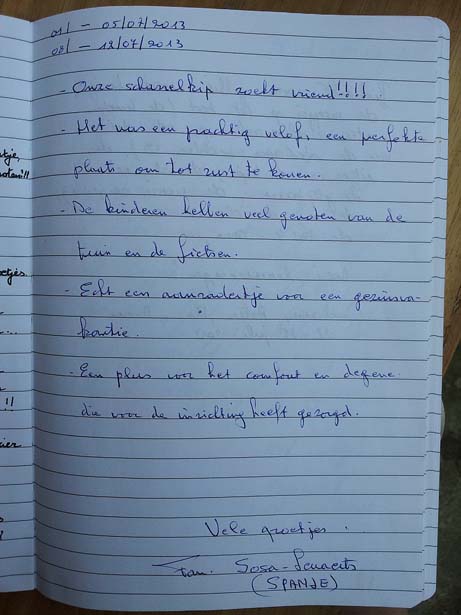 01/ - 05/07/2013
08/ - 12/07/2013
- Onze scharrelkip zoekt vriend!!!!
- Het was een prachtig verlof, een perfekte
plaats om tot rust te komen.
- De kinderen hebben veel genoten van de
tuin en de fietsen.
- Echt een aanradertje voor een gezinsva-
kantie.
- Een plus voor het comfort en degene
die voor de inrichting heeft gezorgd.
Vele groetjes.
Fam. Sosa-Lenaerts
(SPANJE)
tje,
!!